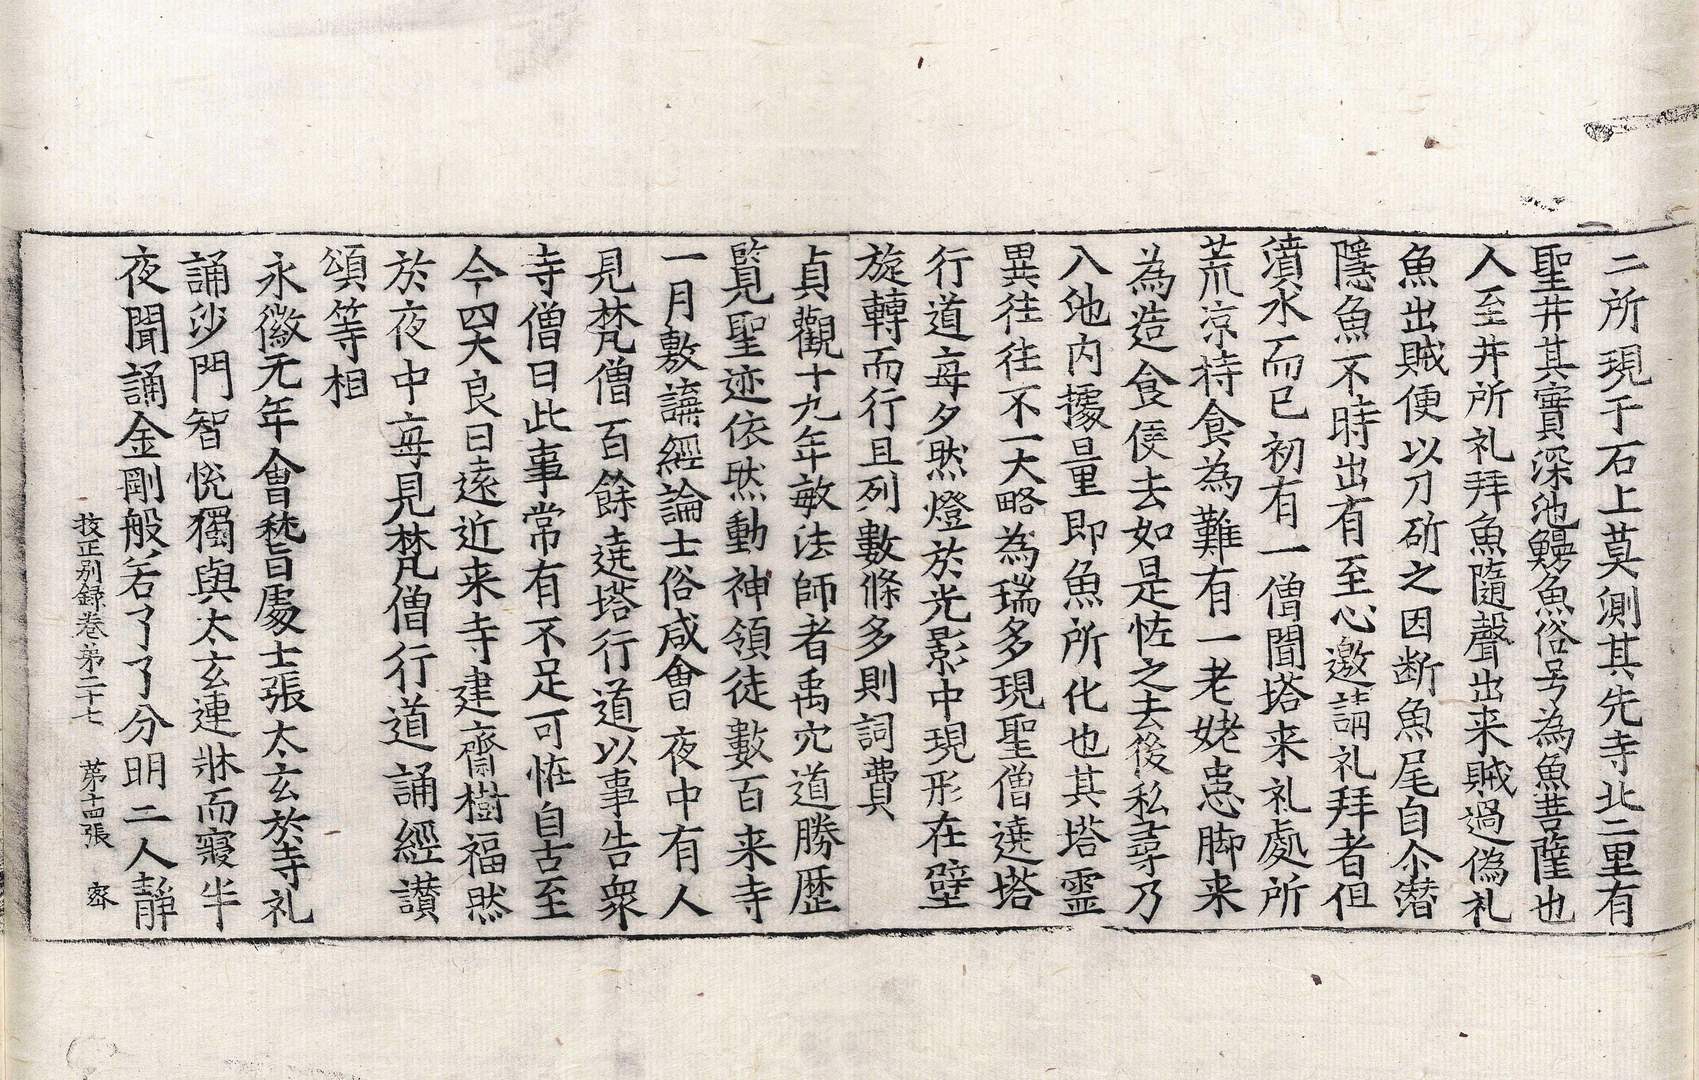 二所現于石上莫測其先寺北二里有
聖井其實深池鰻魚俗号為魚菩薩也
人至井所礼拜魚隨聲出来賊過偽礼
魚出賊便以刀斫之因断魚尾自尒潛
隱魚不時出有至心邀請礼拜者但
濆水而已初有一僧聞塔来礼處所
荒凉持食為難有一老姥患脚来
為造食便去如是恠之去後私尋乃
入池内據量即魚所化也其塔靈
異往往不一大略為瑞多現聖僧遶塔
行道每夕然燈於光影中現形在壁
旋轉而行且列數條多則詞費
貞觀十九年敏法師者禹穴道勝歴
覽見聖迹依然動神領徒數百来寺
一月敷講經論士俗咸會夜中有人
見梵僧百餘遶塔行道以事告衆
寺僧曰此事常有不足可恠自古至
今四大良日遠近来寺建齋樹福然
於夜中每見梵僧行道誦經讃
頌等相
永徽元年會稽處士張太玄於寺礼
誦沙門智悅獨與太玄連牀而寢半
夜聞誦金剛般若了了分明二人静
挍正别録卷第二十七　第十四張　宻